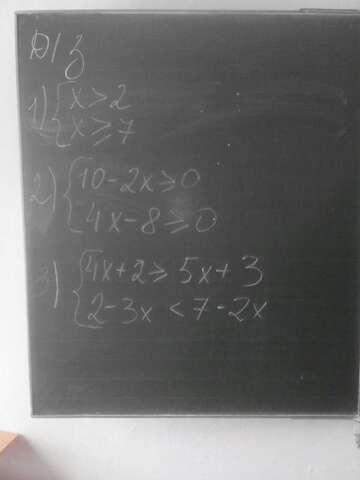 Д/з
1) { x > 2
x ≥ 7
2) { 10 - 2x ≥ 0
4x - 8 ≥ 0
3) { 4x + 2 ≥ 5x + 3
2 - 3x < 7 - 2x